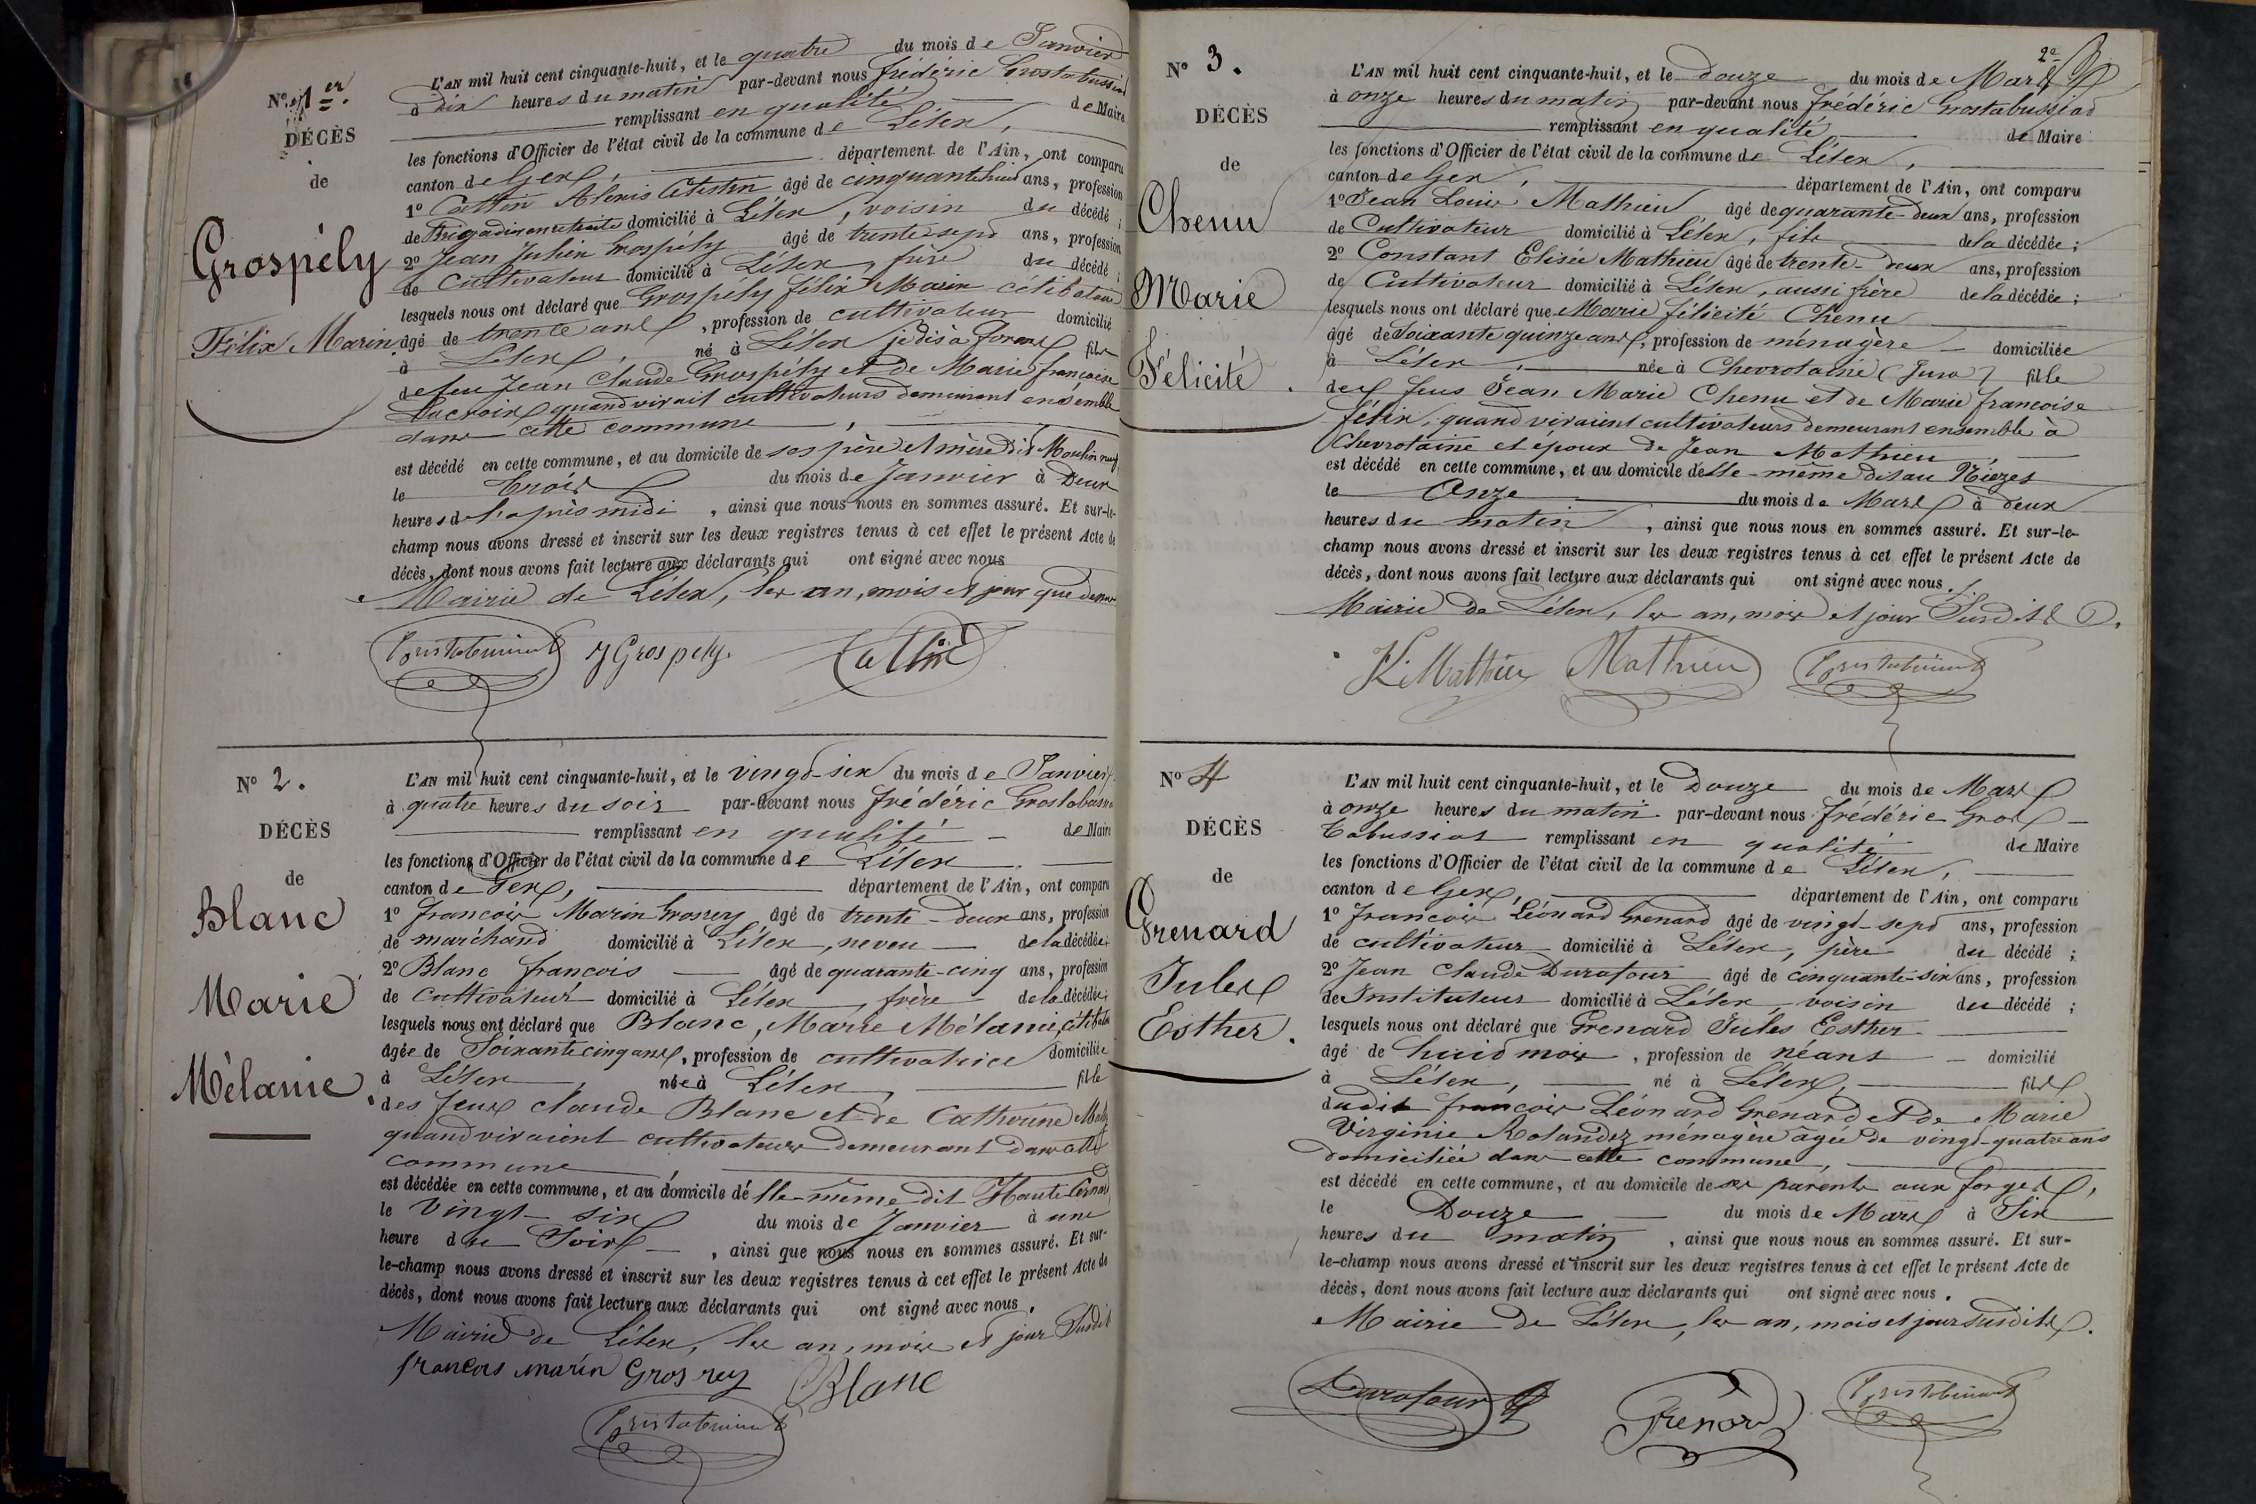 No 1er.
DÉCÈS
de
Grospély
Félix Marin
L'AN mil huit cent cinquante-huit, et le quatre du mois de Janvier
à Dix heures du matin par-devant nous frédéric Grostabussiat
remplissant en qualité de Maire
les fonctions d'Officier de l'état civil de la commune de Lélex,
canton de Gex, département de l'Ain, ont comparu
1o Cottin Alexis Célestin âgé de cinquante huit ans, profession
de Brigadier en retraite domicilié à Lélex, voisin du décédé ;
2o Jean Julien Grospély âgé de trente sept ans, profession
de Cultivateur domicilié à Lélex, frère du décédé ;
lesquels nous ont déclaré que Grospély félix Marin célibataire
âgé de trente ans, profession de cultivateur domicilié
à Lélex, né à Lélex fils
de feu Jean Claude Grospély et de Marie françoise
Lacroix quand vivait cultivateurs demeurant ensemble
dans cette commune,
est décédé en cette commune, et au domicile de ses père et mère dit Moulin neuf
le trois du mois de Janvier à Deux
heures de l'après midi, ainsi que nous nous en sommes assuré. Et sur-le-
champ nous avons dressé et inscrit sur les deux registres tenus à cet effet le présent Acte de
décès, dont nous avons fait lecture aux déclarants qui ont signé avec nous
Mairie de Lélex, les an, mois et jour que dessus
Grostabussiat J Grospely. Cottin
No 2.
DÉCÈS
de
Blanc
Marie
Mélanie
L'AN mil huit cent cinquante-huit, et le vingt-six du mois de Janvier
à quatre heures du soir par-devant nous frédéric Grostabussiat
remplissant en qualité de Maire
les fonctions d'Officier de l'état civil de la commune de Lélex
canton de Gex, département de l'Ain, ont comparu
1o françois Marin Grosrey âgé de trente-deux ans, profession
de marchand domicilié à Lélex, neveu de la décédée ;
2o Blanc françois âgé de quarante-cinq ans, profession
de cultivateur domicilié à Lélex, frère de la décédée ;
lesquels nous ont déclaré que Blanc, Marie Mélanie, célibataire
âgée de Soixante cinq ans, profession de cultivatrice domiciliée
à Lélex, née à Lélex, fille
des feux claude Blanc et de Catherine
quand vivaient cultivateurs demeurant dans cette
commune
est décédée en cette commune, et au domicile d'elle-même dit
le vingt-six du mois de Janvier à une
heure du Soir, ainsi que nous nous en sommes assuré. Et sur-
le-champ nous avons dressé et inscrit sur les deux registres tenus à cet effet le présent Acte de
décès, dont nous avons fait lecture aux déclarants qui ont signé avec nous.
Mairie de Lélex, les an, mois et jour Susdit
francois marin Gros rey Blanc
Grostabussiat
2e
No 3.
DÉCÈS
de
Chenu
Marie
Félicité.
L'AN mil huit cent cinquante-huit, et le douze du mois de Mars
à onze heures du matin par-devant nous frédéric Grostabussiat
remplissant en qualité de Maire
les fonctions d'Officier de l'état civil de la commune de Lélex,
canton de Gex, département de l'Ain, ont comparu
1o Jean Louis Mathieu âgé de quarante-deux ans, profession
de Cultivateur domicilié à Lélex, fils de la décédée ;
2o Constant Elisée Mathieu âgé de trente-deux ans, profession
de Cultivateur domicilié à Lélex, aussi frère de la décédée ;
lesquels nous ont déclaré que Marie félicité Chenu
âgé de Soixante quinze ans, profession de ménagère domiciliée
à Lélex, née à Chevrotaine (Jura) fille
des feus Jean Marie Chenu et de Marie francoise
félix, quand vivaient cultivateurs demeurant ensemble à
Chevrotaine et époux de Jean Mathieu
est décédé en cette commune, et au domicile d'elle-même dit au Niezet
le Onze du mois de Mars à deux
heures du matin, ainsi que nous nous en sommes assuré. Et sur-le-
champ nous avons dressé et inscrit sur les deux registres tenus à cet effet le présent Acte de
décès, dont nous avons fait lecture aux déclarants qui ont signé avec nous.
Mairie de Lélex, les an, mois et jour Susdits.
Mathieu Mathieu Grostabussiat
No 4
DÉCÈS
de
Grenard
Jules
Esther.
L'AN mil huit cent cinquante-huit, et le Douze du mois de Mars
à onze heures du matin par-devant nous frédéric Gros-
tabussiat remplissant en qualité de Maire
les fonctions d'Officier de l'état civil de la commune de Lélex,
canton de Gex, département de l'Ain, ont comparu
1o francois Léonard Grenard âgé de vingt-sept ans, profession
de cultivateur domicilié à Lélex, père du décédé ;
2o Jean Claude Durafour âgé de cinquante-six ans, profession
de Instituteur domicilié à Lélex, voisin du décédé ;
lesquels nous ont déclaré que Grenard Jules Esther
âgé de huit mois, profession de néant domicilié
à Lélex, né à Lélex, fils
dudit françois Léonard Grenard et de Marie
Virginie Rolandez ménagère âgée de vingt-quatre ans
domiciliée dans cette commune,
est décédé en cette commune, et au domicile de ses parents aux forges,
le Douze du mois de Mars à Six
heures du matin, ainsi que nous nous en sommes assuré. Et sur-
le-champ nous avons dressé et inscrit sur les deux registres tenus à cet effet le présent Acte de
décès, dont nous avons fait lecture aux déclarants qui ont signé avec nous.
Mairie de Lélex, les an, mois et jour susdits.
Durafour Grenard Grostabussiat